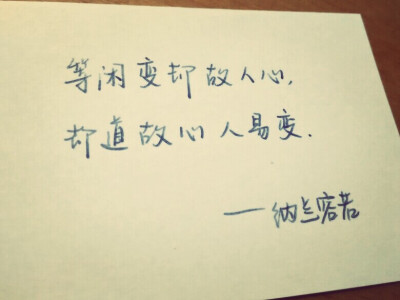 等闲变却故人心,
却道故心人易变.
——纳兰容若